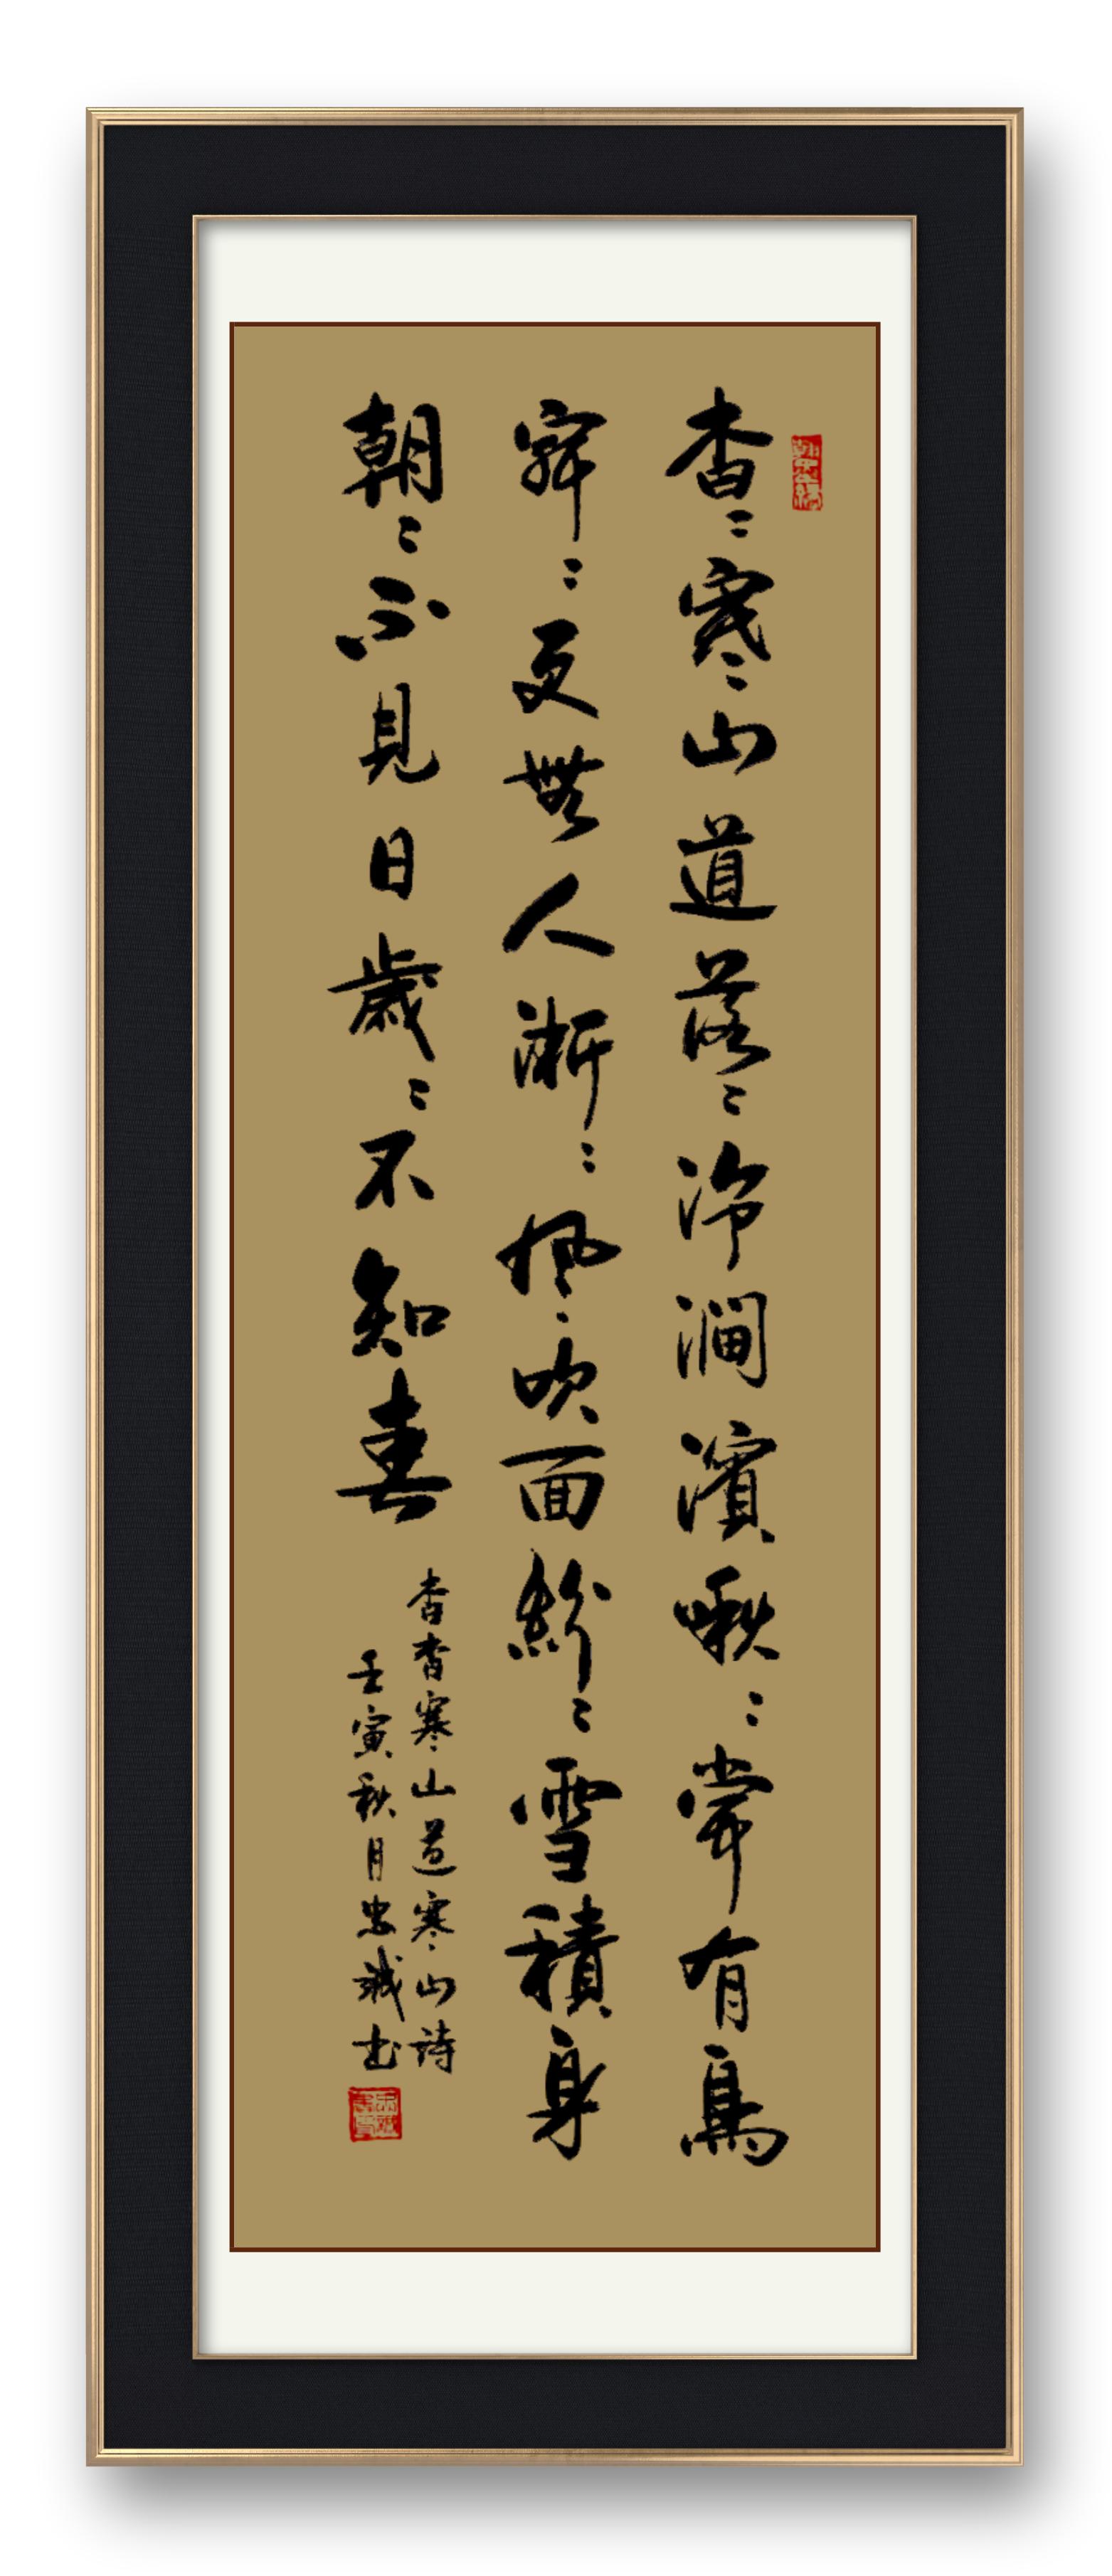 杳〻寒山道落〻冷澗濱啾〻常有鳥
寂〻更無人淅〻風吹面紛〻雪積身
朝〻不見日歲〻不知春
杳杳寒山道寒山詩
壬寅秋月忠誠書